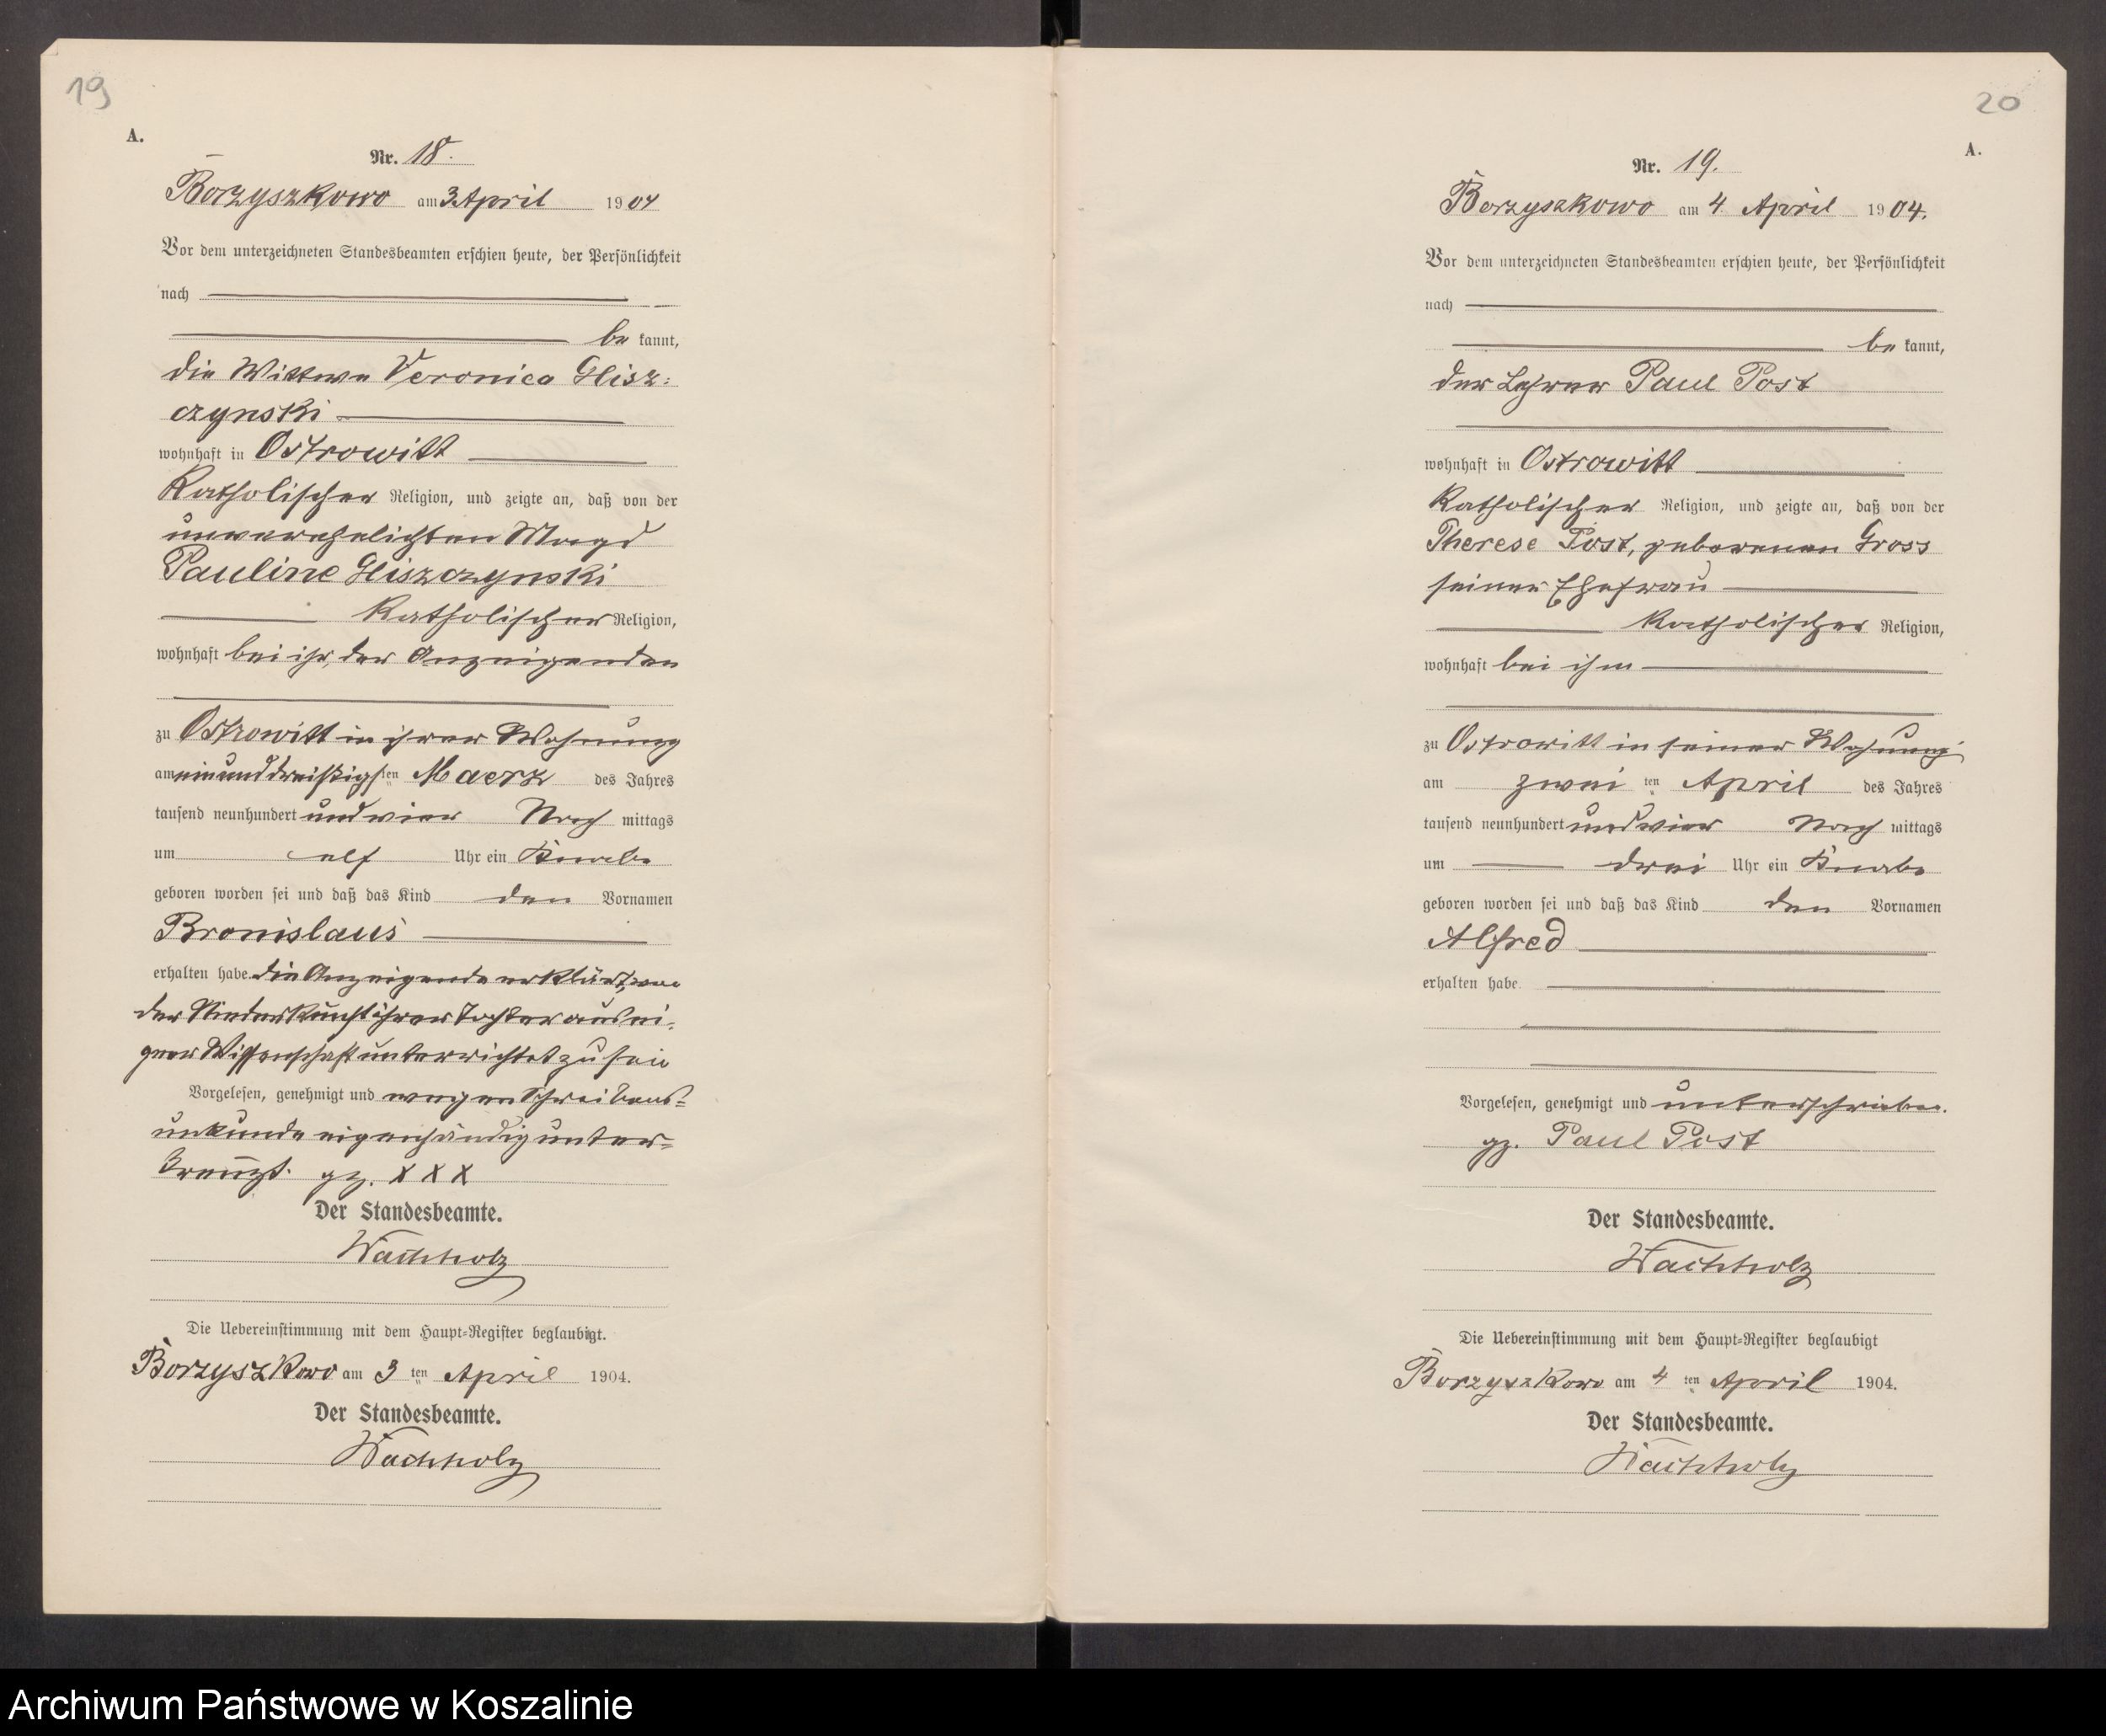 19
A.
Nr. 18.
Borzyszkowo am 3. April 1904
Vor dem unterzeichneten Standesbeamten erschien heute, der Persönlichkeit
nach
be kannt,
die Wittwe Veronica Glisz-
czynski
wohnhaft in Ostrowitt
katholischer Religion, und zeigte an, daß von der
unverehelichten Magd
Pauline Gliszczynski
katholischer Religion,
wohnhaft bei ihr, der Anzeigenden
zu Ostrowitt in ihrer Wohnung
am einunddreißigsten ten Maerz des Jahres
tausend neunhundert und vier Nach mittags
um elf Uhr ein Knabe
geboren worden sei und daß das Kind den Vornamen
Bronislaus
erhalten habe. Die Anzeigende erklärt, von
der Niederkunft ihrer Tochter aus ei-
gner Wissenschaft unterrichtet zu sein
Vorgelesen, genehmigt und wegen Schreibens-
unkunde eigenhändig unter-
kreuzt. gz. X X X
Der Standesbeamte.
Wachholz
Die Uebereinstimmung mit dem Haupt-Register beglaubigt.
Borzyszkowo am 3 ten April 1904.
Der Standesbeamte.
Wachholz
20
A.
Nr. 19.
Borzyszkowo am 4. April 1904.
Vor dem unterzeichneten Standesbeamten erschien heute, der Persönlichkeit
nach
be kannt,
der Lehrer Paul Post
wohnhaft in Ostrowitt
katholischer Religion, und zeigte an, daß von der
Therese Post, geborenen Gross
seiner Ehefrau
katholischer Religion,
wohnhaft bei ihm
zu Ostrowitt in seiner Wohnung
am zwei ten April des Jahres
tausend neunhundert und vier Nach mittags
um drei Uhr ein Knabe
geboren worden sei und daß das Kind den Vornamen
Alfred
erhalten habe.
Vorgelesen, genehmigt und unterschrieben.
gz. Paul Post
Der Standesbeamte.
Wachholz
Die Uebereinstimmung mit dem Haupt-Register beglaubigt
Borzyszkowo am 4 ten April 1904.
Der Standesbeamte.
Wachholz
Archiwum Państwowe w Koszalinie